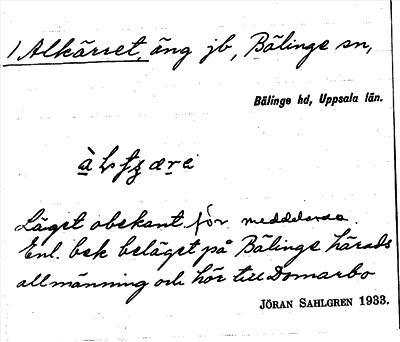 1) Alkärret, äng jb, Bälinge sn,
Bälinge hd, Uppsala län.
Läget obekant för meddelarna.
Enl. bek beläget på Bälinge härads
allmänning och hör till Domarbo
JÖRAN SAHLGREN 1933.